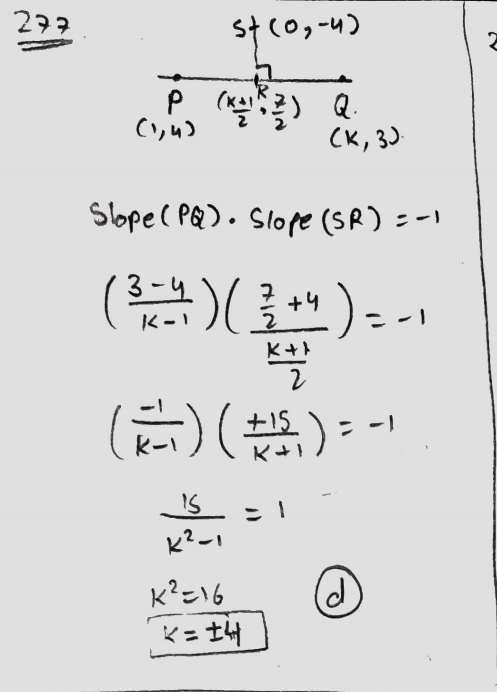 277
S (0, -4)
P R Q
(1, 4) (k+1/2, 7/2) (K, 3)
Slope(PQ) . Slope(SR) = -1
(3-4/K-1) (7/2 +4/(K+1/2)) = -1
(-1/K-1) (+15/K+1) = -1
15/K²-1 = 1
K² = 16
(d)
K = ±4